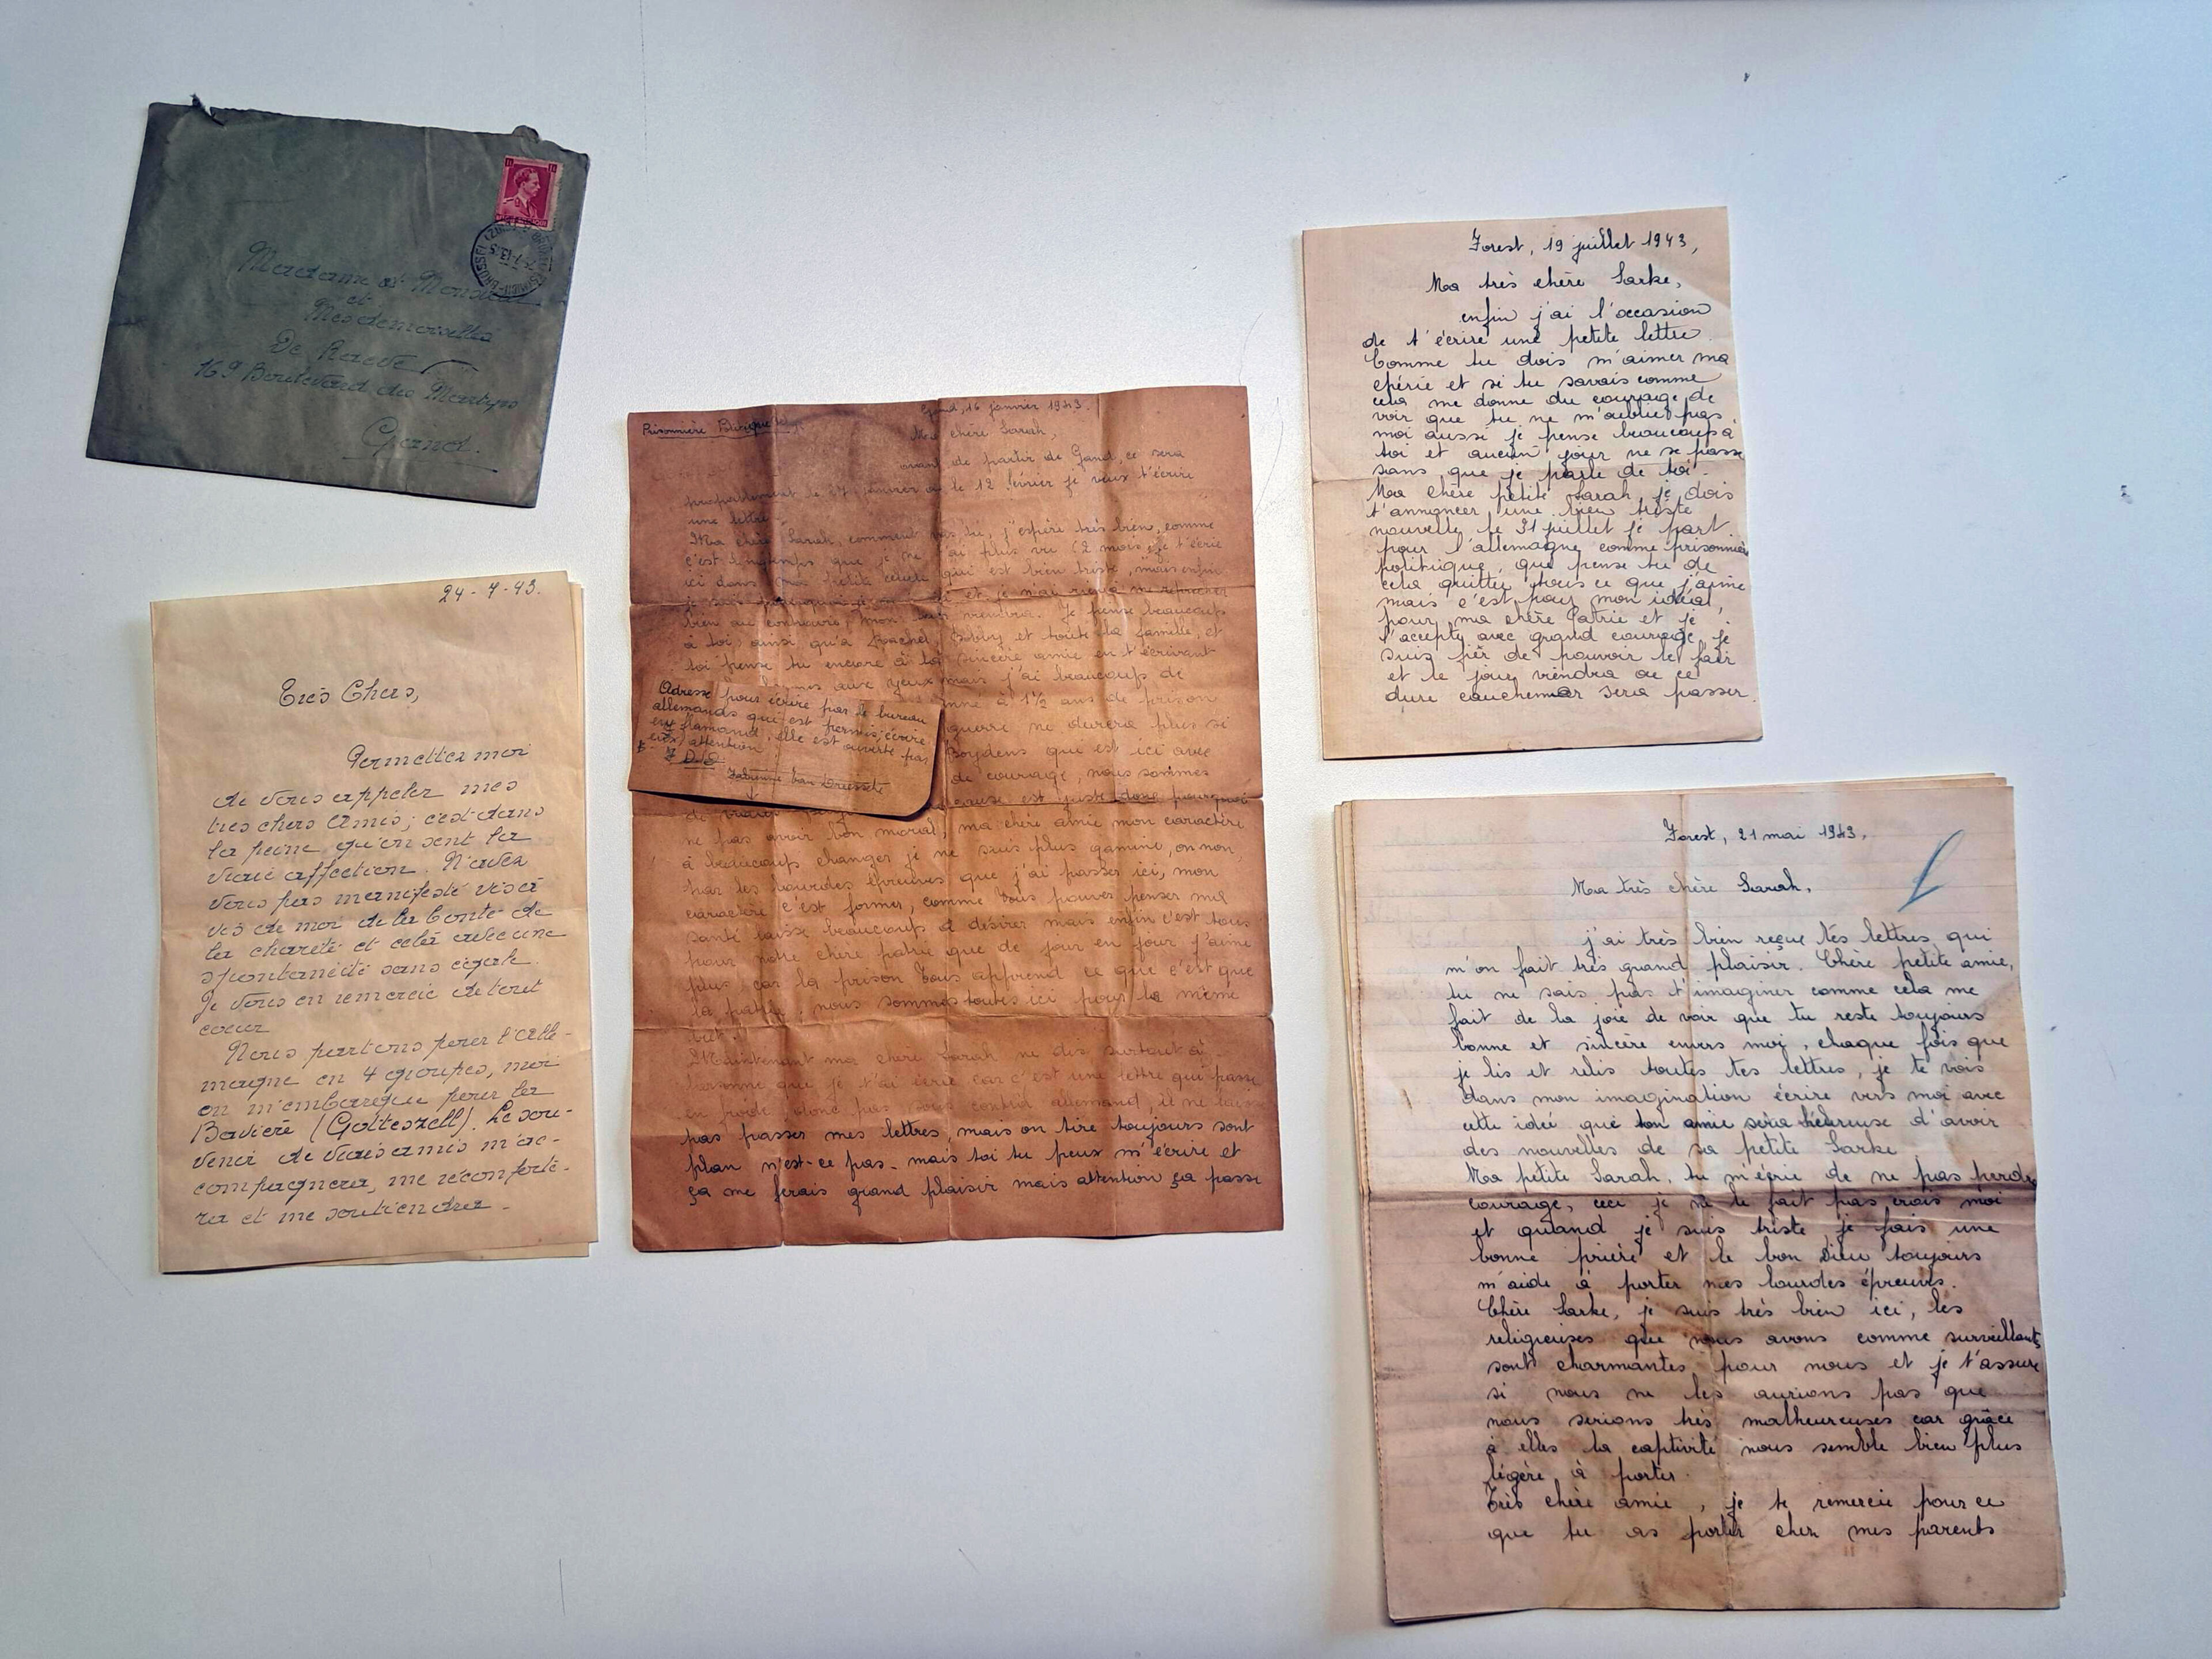 Madame et Monsieur
et
Mesdemoiselles
De Raeve
169 Boulevard des Martyrs
Gand.
24-7-43.
Très Chers,
Permettez moi
de vous appeler mes
très chers Amis; c'est dans
la peine qu'on sent la
vraie affection. N'avez
vous pas manifesté vis à
vis de moi de la bonté de
la charité et cela avec une
spontanéité sans égale.
Je vous en remercie de tout
coeur
Nous partons pour l'Alle-
magne en 4 groupes, moi
on m'embarque pour la
Bavière (Gotteszell). Le sou-
venir de vrais amis m'ac-
compagnera, me réconforte-
ra et me soutiendra.
Prisonnière
Gand, 16 janvier 1943.
Ma chère Sarah,
avant de partir de Gand, ce sera
le 27 janvier ou le 12 février je veux t'écrire
une lettre.
Ma chère Sarah, comment vas tu, j'espère très bien, comme
c'est longtemps que je ne t'ai plus vu (2 mois) je t'écrie
ici dans ma petite cellule qui est bien triste, mais enfin
je sais pourquoi je suis ici et je n'ai rien à me reprocher
bien au contraire, mon tour viendra. Je pense beaucoup
à toi, ainsi qu'à Rachel, Bobby et toute la famille, et
toi pense tu encore à ta sincère amie en t'écrivant
larmes aux yeux mais j'ai beaucoups de
à 1½ ans de prison
guerre ne durera plus si
Boydens qui est ici avec
de courage, nous sommes
cause est juste donc pourquoi
ne pas avoir bon moral, ma chère amie mon caractère
à beaucoups changer je ne suis plus gamine, oh non,
par les lourdes épreuves que j'ai passer ici, mon
caractère c'est former, comme vous pouvez penser ma
santé laisse beaucoups à désirer mais enfin c'est tous
pour notre chère patrie que de jour en jour j'aime
plus, car la prison vous apprend ce que c'est que
la patrie, nous sommes toutes ici pour la même
but.
Maintenant ma chère Sarah ne dis surtout à
personne que je t'ai écrie car c'est une lettre qui passe
en fraude, donc pas sous control allemand, il ne laisse
pas passer mes lettres, mais on tire toujours sont
plan n'est-ce pas - mais toi tu peux m'écrire et
ça me ferais grand plaisir mais attention ça passe
Adresse pour écrire par le bureau
allemands qui est permis, écrire
en flamand, elle est ouverte par
eux, attention
Forest, 19 juillet 1943,
Ma très chère Sarke,
enfin j'ai l'occasion
de t'écrire une petite lettre.
Comme tu dois m'aimer ma
chérie et si tu savais comme
cela me donne du courage de
voir que tu ne m'oublie pas,
moi aussi je pense beaucoup à
toi et aucun jour ne se passe
sans que je parle de toi.
Ma chère petite Sarah, je dois
t'annoncer une bien triste
nouvelle, le 21 juillet je part
pour l'allemagne comme prisonnière
politique, que pense tu de
cela quitter tous ce que j'aime
mais c'est pour mon idéal,
pour ma chère Patrie et je
l'accepte avec grand courage, je
suis fier de pouvoir le fair
et le jour viendra ou ce
dure cauchemar sera passer.
Forest, 21 mai 1943.
Ma très chère Sarah,
j'ai très bien reçue tes lettres qui
m'on fait très grand plaisir. Chère petite amie,
tu ne sais pas t'imaginer comme cela me
fait de la joie de voir que tu reste toujours
bonne et sincère envers moi, chaque fois que
je lis et relis toutes tes lettres, je te vois
dans mon imagination écrire vers moi avec
cette idée que ton amie sera héureuse d'avoir
des nouvelles de sa petite Sarke.
Ma petite Sarah, tu m'écrie de ne pas perdre
courage, ceci je ne le fait pas crois moi
et quand je suis triste, je fais une
bonne prière et le bon Dieu toujours
m'aide à porter mes lourdes épreuves.
Chère Sarke, je suis très bien ici, les
religieuses que nous avons comme surveillants
sont charmantes pour nous et je t'assure
si nous ne les aurions pas que
nous serions très malheureuses car grâce
à elles la captivité nous semble bien plus
légère à porter.
Très chère amie, je te remercie pour ce
que tu as porter chez mes parents